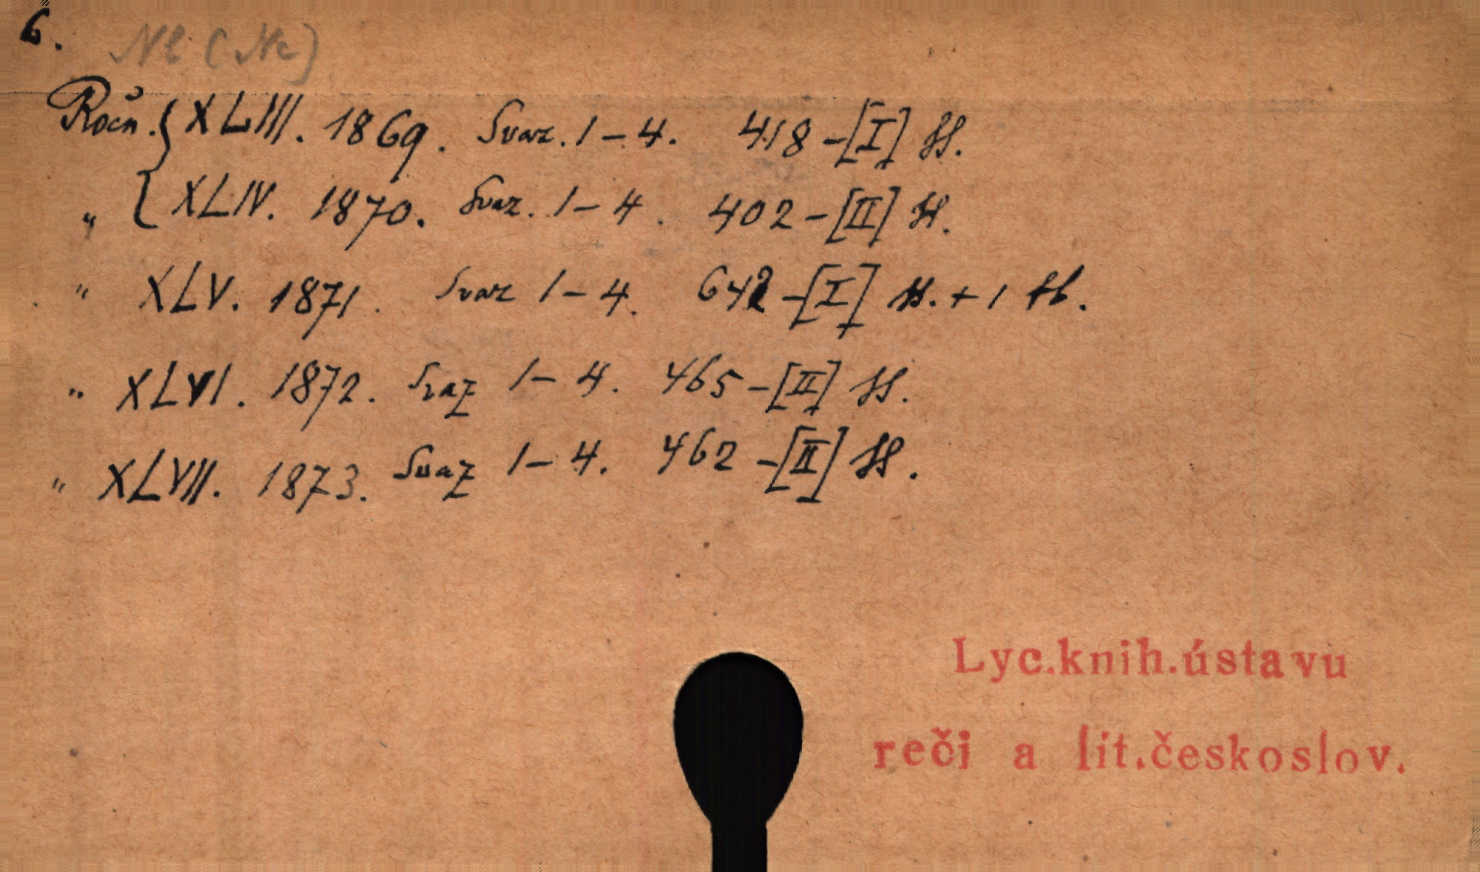 6.
Ročn. { XLIII. 1869. Svaz. 1-4. 418-[I] H.
„ { XLIV. 1870. Svaz. 1-4. 402-[II] H.
" XLV. 1871. Svaz 1-4. 642-[I] H. + 1 tb.
" XLVI. 1872. Svaz 1-4. 465-[II] H.
" XLVII. 1873. Svaz 1-4. 462-[II] H.
Lyc.knih.ústavu
reči a lit.českoslov.